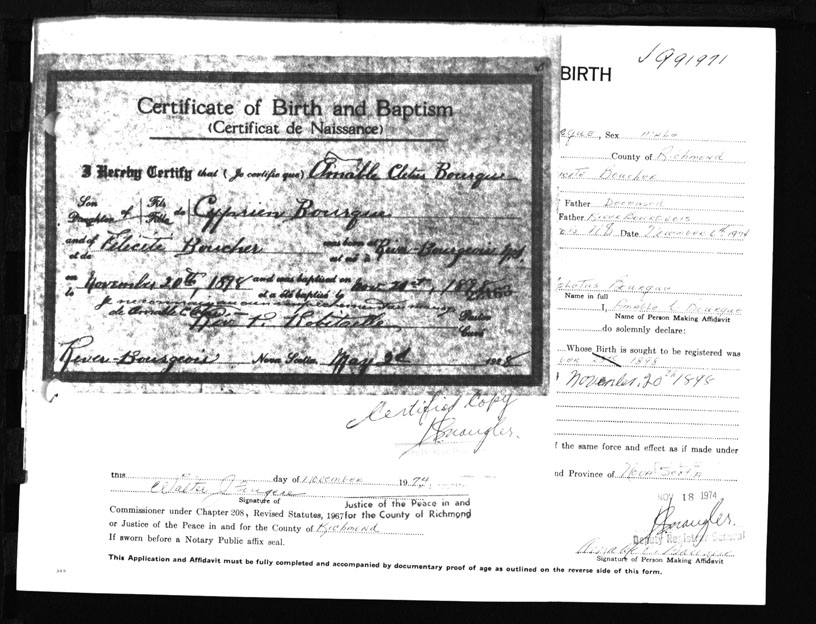 Certificate of Birth and Baptism
(Certificat de Naissance)
I Hereby Certify that (Je certifie que) Amable Cletus Bourque
Son Fils
Daughter of Fille de Cyprien Bourque
and of Felicite Boucher was born at River-Bourgeois N.S.
et de
on November 20th, 1898 and was baptised on Nov. 20th, 1898
le et a été baptisé le
de Amable C.
Rev. Pastor
Curé
River-Bourgeois Nova Scotia May 2d 1928
Certified Copy
BIRTH
Sex Male
County of Richmond
Boucher
Father Deceased
Father River Bourgeois
Date December 6th 1974
Bourque
Name in full
I, Amable C Bourque
Name of Person Making Affidavit
do solemnly declare:
Whose Birth is sought to be registered was
1898
November, 20th 1898
f the same force and effect as if made under
nd Province of Nova Scotia
NOV 18 1974
Deputy Registrar General
Signature of Person Making Affidavit
this day of November 1974
Walter
Signature of
Justice of the Peace in and
Commissioner under Chapter 208, Revised Statutes, 1967 for the County of Richmond
or Justice of the Peace in and for the County of Richmond
If sworn before a Notary Public affix seal.
This Application and Affidavit must be fully completed and accompanied by documentary proof of age as outlined on the reverse side of this form.